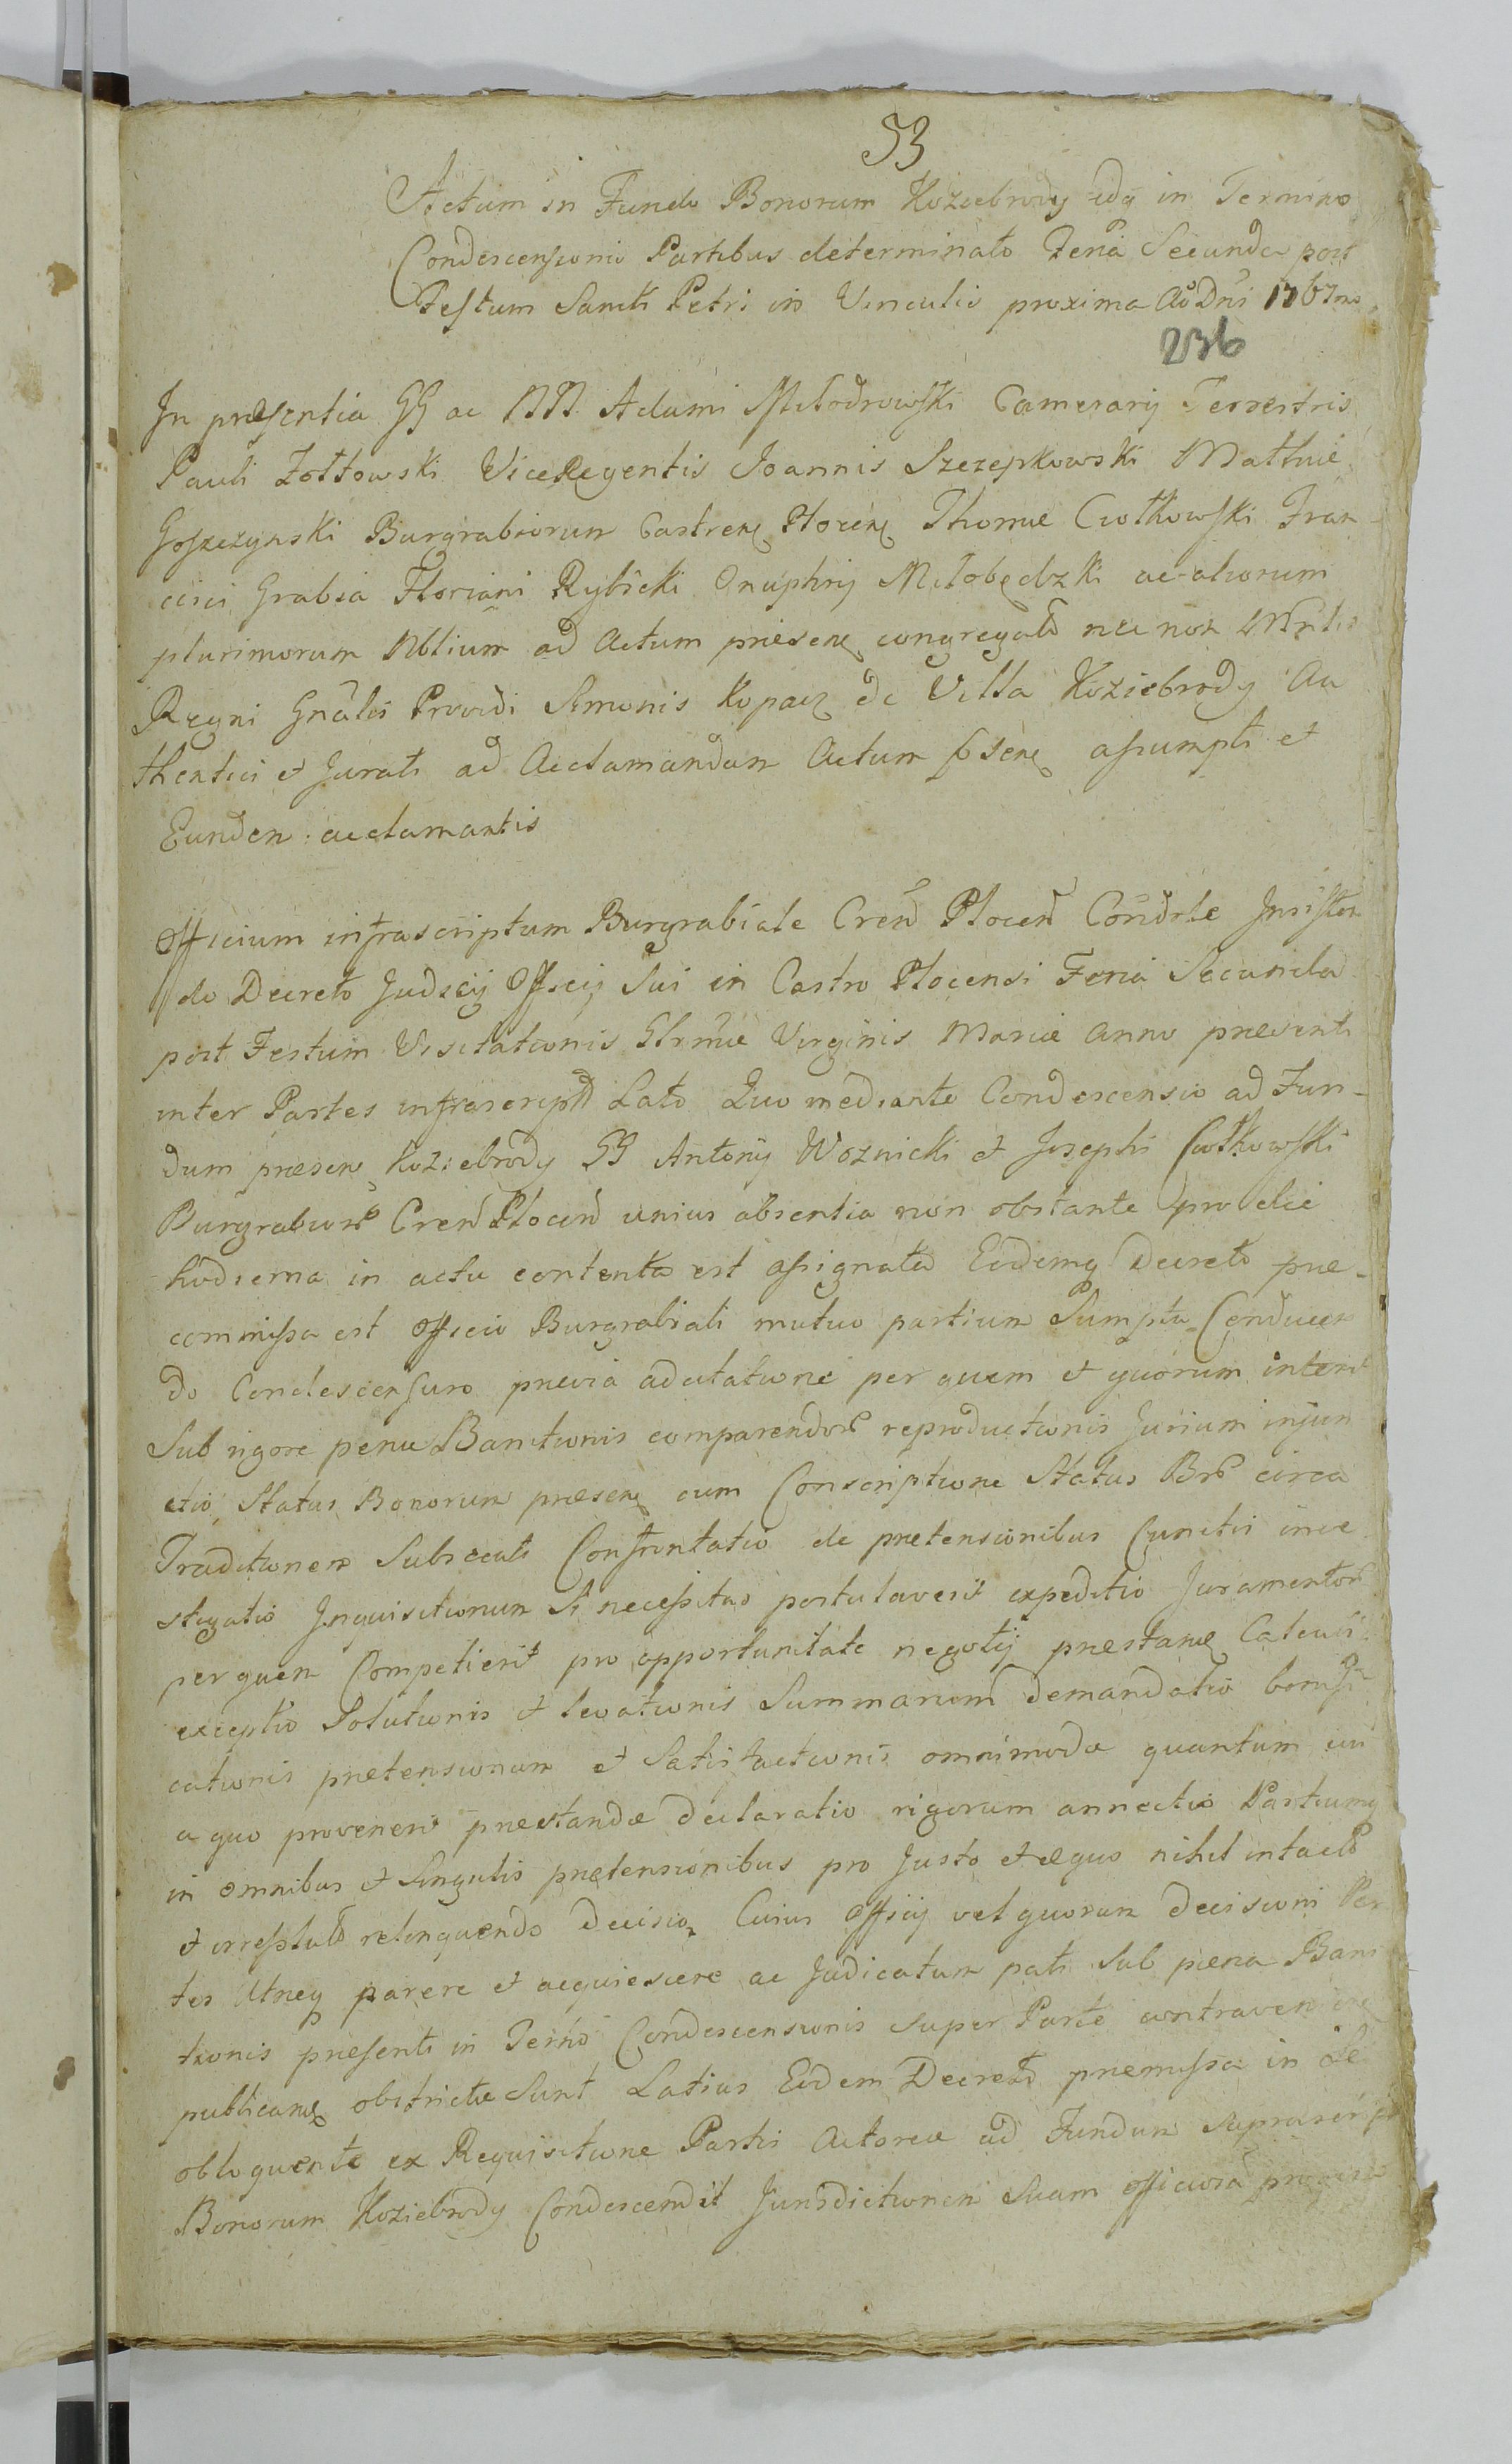 53
Actum in Fundo Bonorum Koziebrody idq in Termino
Condescensionis Partibus determinato Feria Secunda post
Festum Sancti Petri in Vinculis proxima Ao Dni 1767mo
236
In præsentia GG ac NN. Adami Młodrowski Camerarij Terrestris
Pauli Zołtowski ViceRegentis Joannis Szczepkowski Mathiæ
Goszczynski Burgrabiorum Castren Plocen Thomæ Ciołkowski Fran
cisci Grabia Floriani Rybicki Onuphrij Miłobędzki ac aliorum
plurimorum Nblium ad Actum præsen congregat nec non Mrlis
Regni Gnalis Providi Simonis Kopacz de Villa Koziebrody Au
thentici et Jurati ad Acclamandum Actum psen assumpti et
Eunden acclamantis
Officium infrascriptum Burgrabiale Cren Plocen Condrle Insisten
do Decreto Judicij Officij Sui in Castro Plocensi Feria Secunda
post Festum Visitationis Glrmæ Virginis Mariæ Anno præsenti
inter Partes infrascript Lato Quo mediante Condescensio ad Fun-
dum præsen Koziebrody GG Antonij Woznicki et Josephi Ciołkowski
Burgrabior Cren Plocen unius absentia non obstante pro die
hodierna in actu contenta est assignata Eodemq Decreto præ-
commissa est Officio Burgrabiali mutuo partium Sumptu Conducen
do Condescensuro prævia adcitatione per quem et quorum intererit
Sub rigore penæ Bannitionis comparendor reproductionis Jurium injun
ctio Status Bonorum præsen cum Conscriptione Status Bnr circa
Traditionem Subsecuti Confrontatio de prætensionibus Cunctis inve
stigatio Inquisitionum Si necessitas postulaverit expeditio Juramentor
per quem Competierit pro opportunitate negotij præstan Calculi
exceptio Solutionis et levationis Summarum demandatio bonifi
cationis prætensionum et Satisfactionis omnimodæ quantum cui
a quo provenerit præstandæ declaratio rigorum annectio Partiumq
in omnibus et Singulis prætensionibus pro Justo et æquo nihil intact
et irresolut relinquendo decisio Cuius Officij vel quorum decisioni Par
tes Utræq parere et acquiescere ac Judicatum pati Sub pæna Banni
tionis præsenti in Termo Condescensionis super Parte contravenien
publican obstrictæ Sunt Latius Eodem Decreto præmissa in Se
obloquente ex Requisitione Partis Actoreæ ad Fundum Suprascript
Bonorum Koziebrody Condescendit Jurisdictionem Suam officiosa